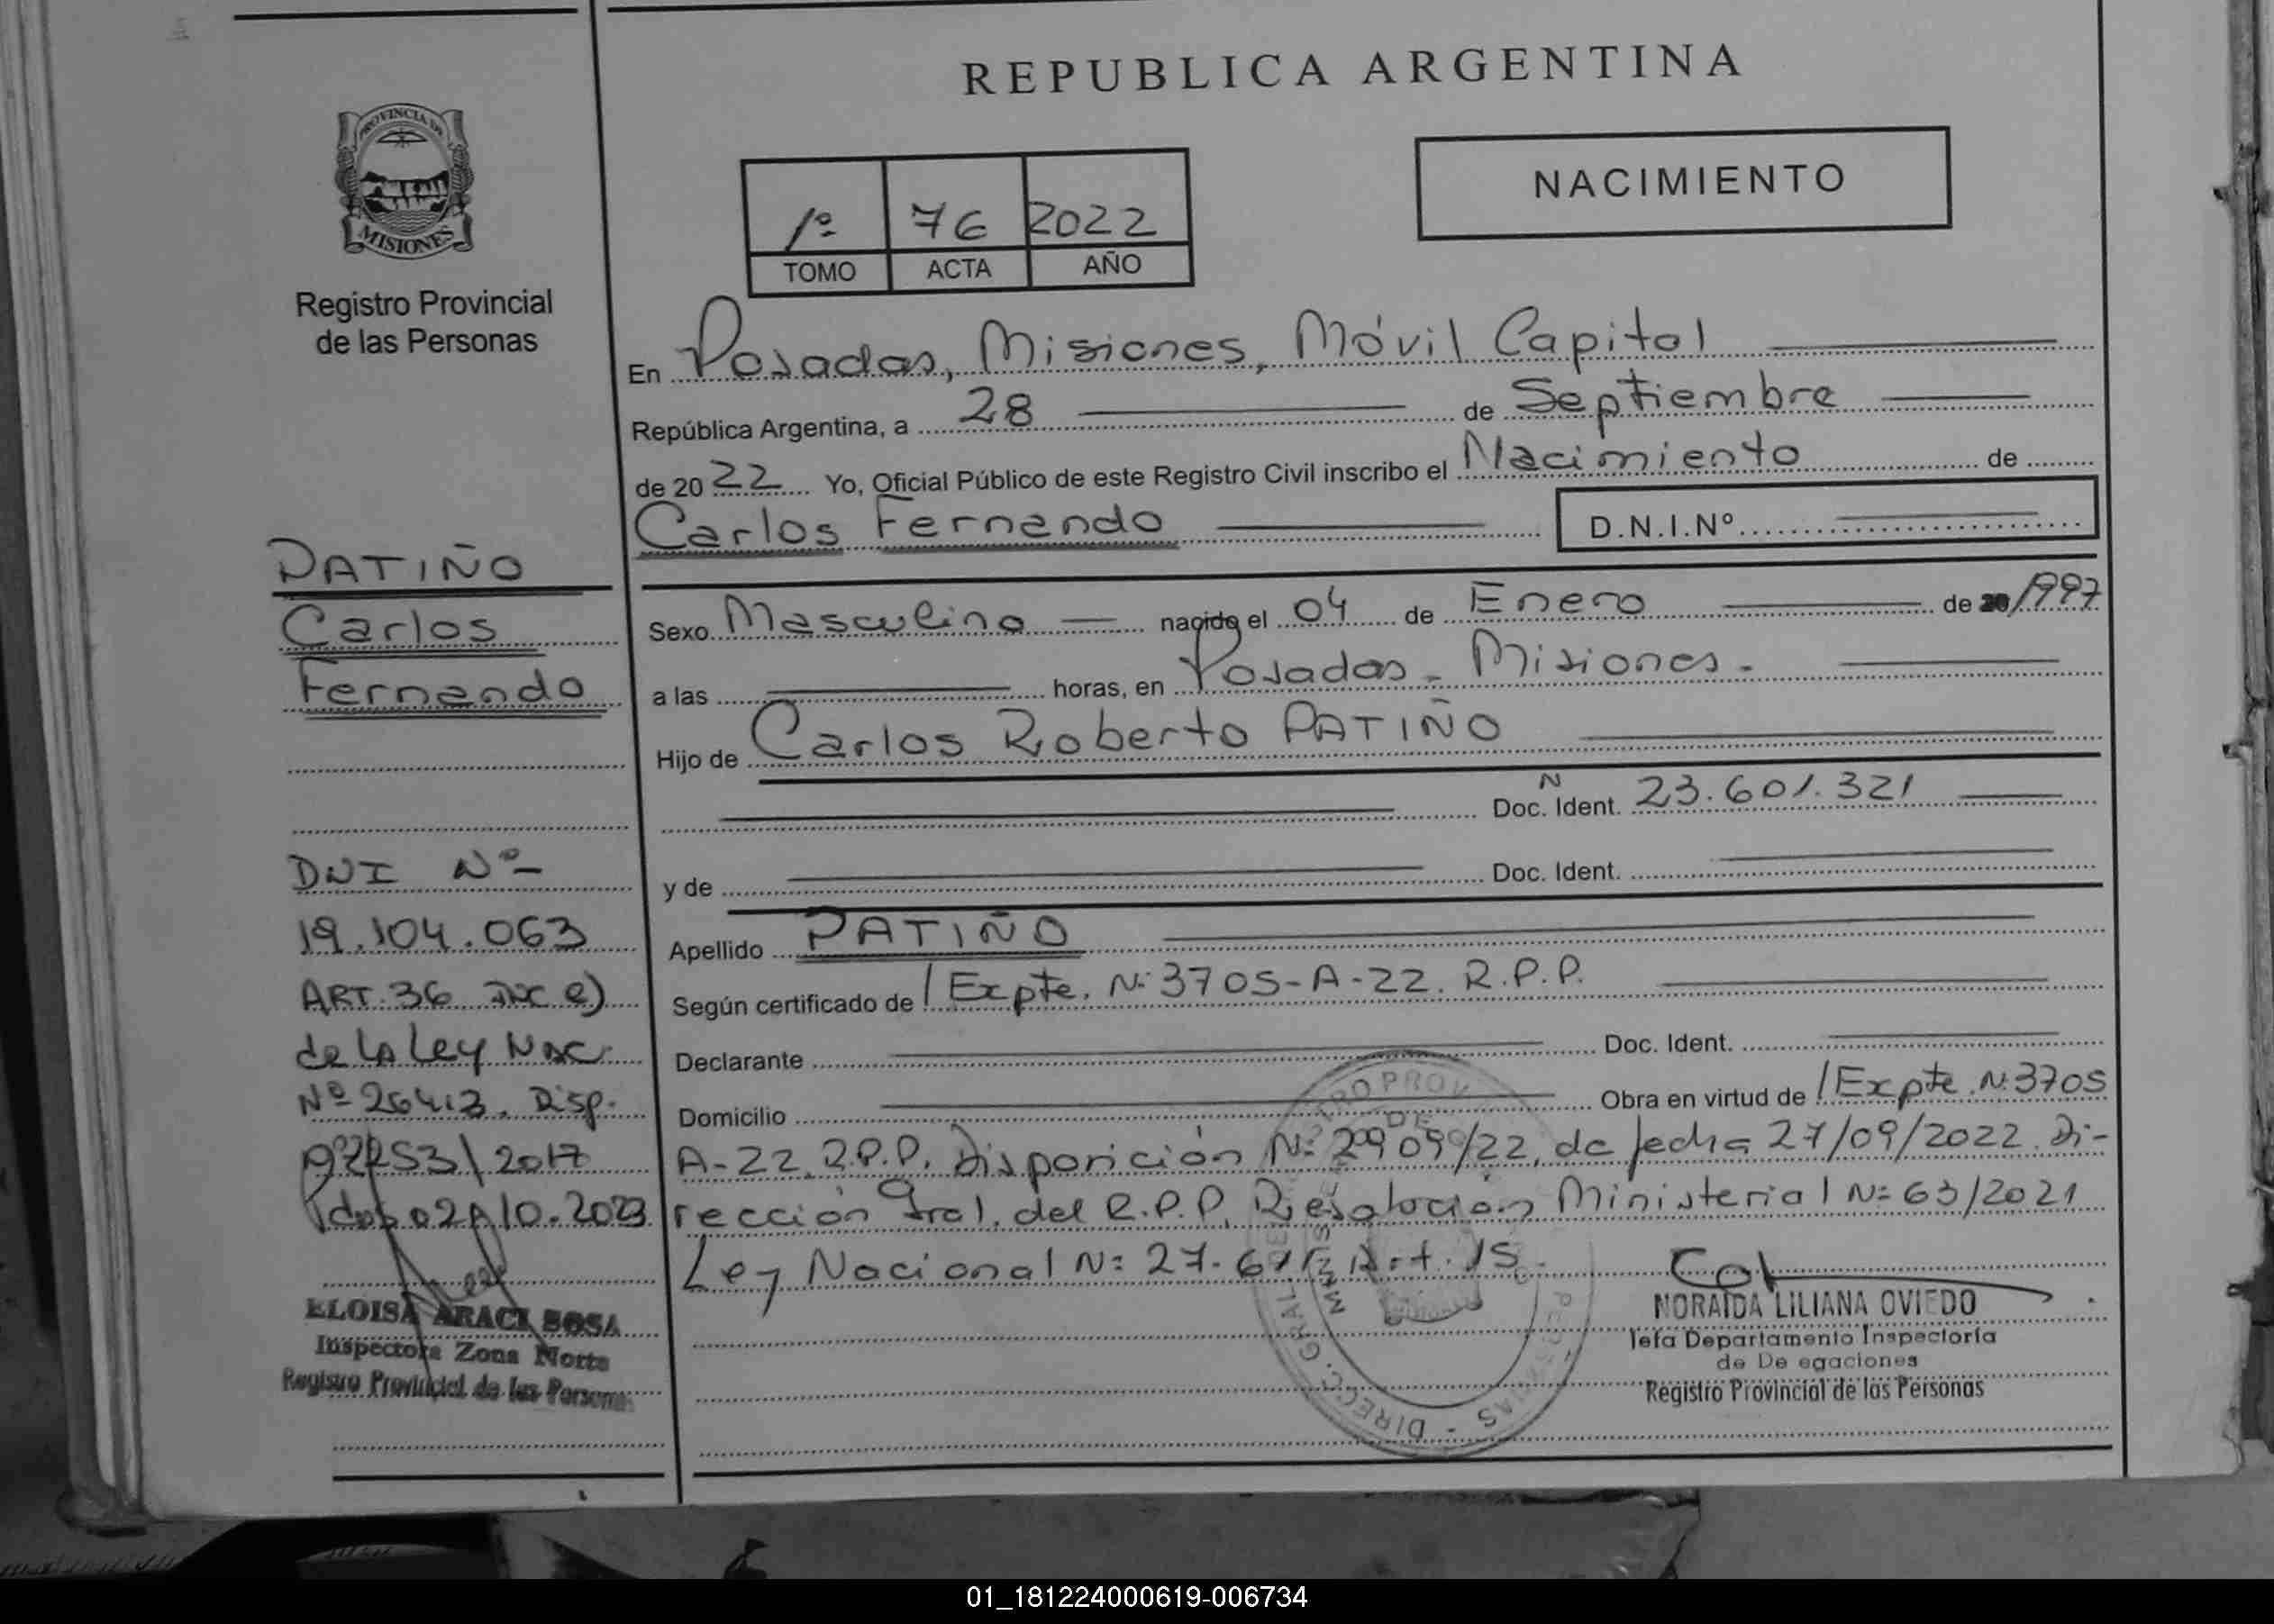 REPUBLICA ARGENTINA
PROVINCIA DE
MISIONES
Registro Provincial
de las Personas
NACIMIENTO
1º 76 2022
TOMO ACTA AÑO
En Posadas, Misiones, Móvil Capital
República Argentina, a 28 de Septiembre
de 2022 Yo, Oficial Público de este Registro Civil inscribo el Nacimiento de
Carlos Fernando D.N.I.Nº
PATIÑO
Carlos
Fernando
DNI Nº
19.104.063
ART. 36 INC e)
de LA Ley NAC.
Nº 26413. Disp.
/2017
10.2023
ELOISA ARACI SOSA
Inspectora Zona Norte
Registro Provincial de las Personas
Sexo Masculino nacido el 04 de Enero de 20/1997
a las horas, en Posadas - Misiones.
Hijo de Carlos Roberto PATIÑO
N
Doc. Ident. 23.601.321
y de Doc. Ident.
Apellido PATIÑO
Según certificado de /Expte. N: 3705-A-22. R.P.P.
Declarante Doc. Ident.
Domicilio Obra en virtud de /Expte. N: 3705
A-22. R.P.P. Disposición N: 2909/22, de fecha 27/09/2022. Di-
rección Gral. del R.P.P. Resolución Ministerial N: 63/2021
Ley Nacional N: 27. Art. 15.
NORAIDA LILIANA OVIEDO
Jefa Departamento Inspectoría
de De egaciones
Registro Provincial de las Personas
01_181224000619-006734